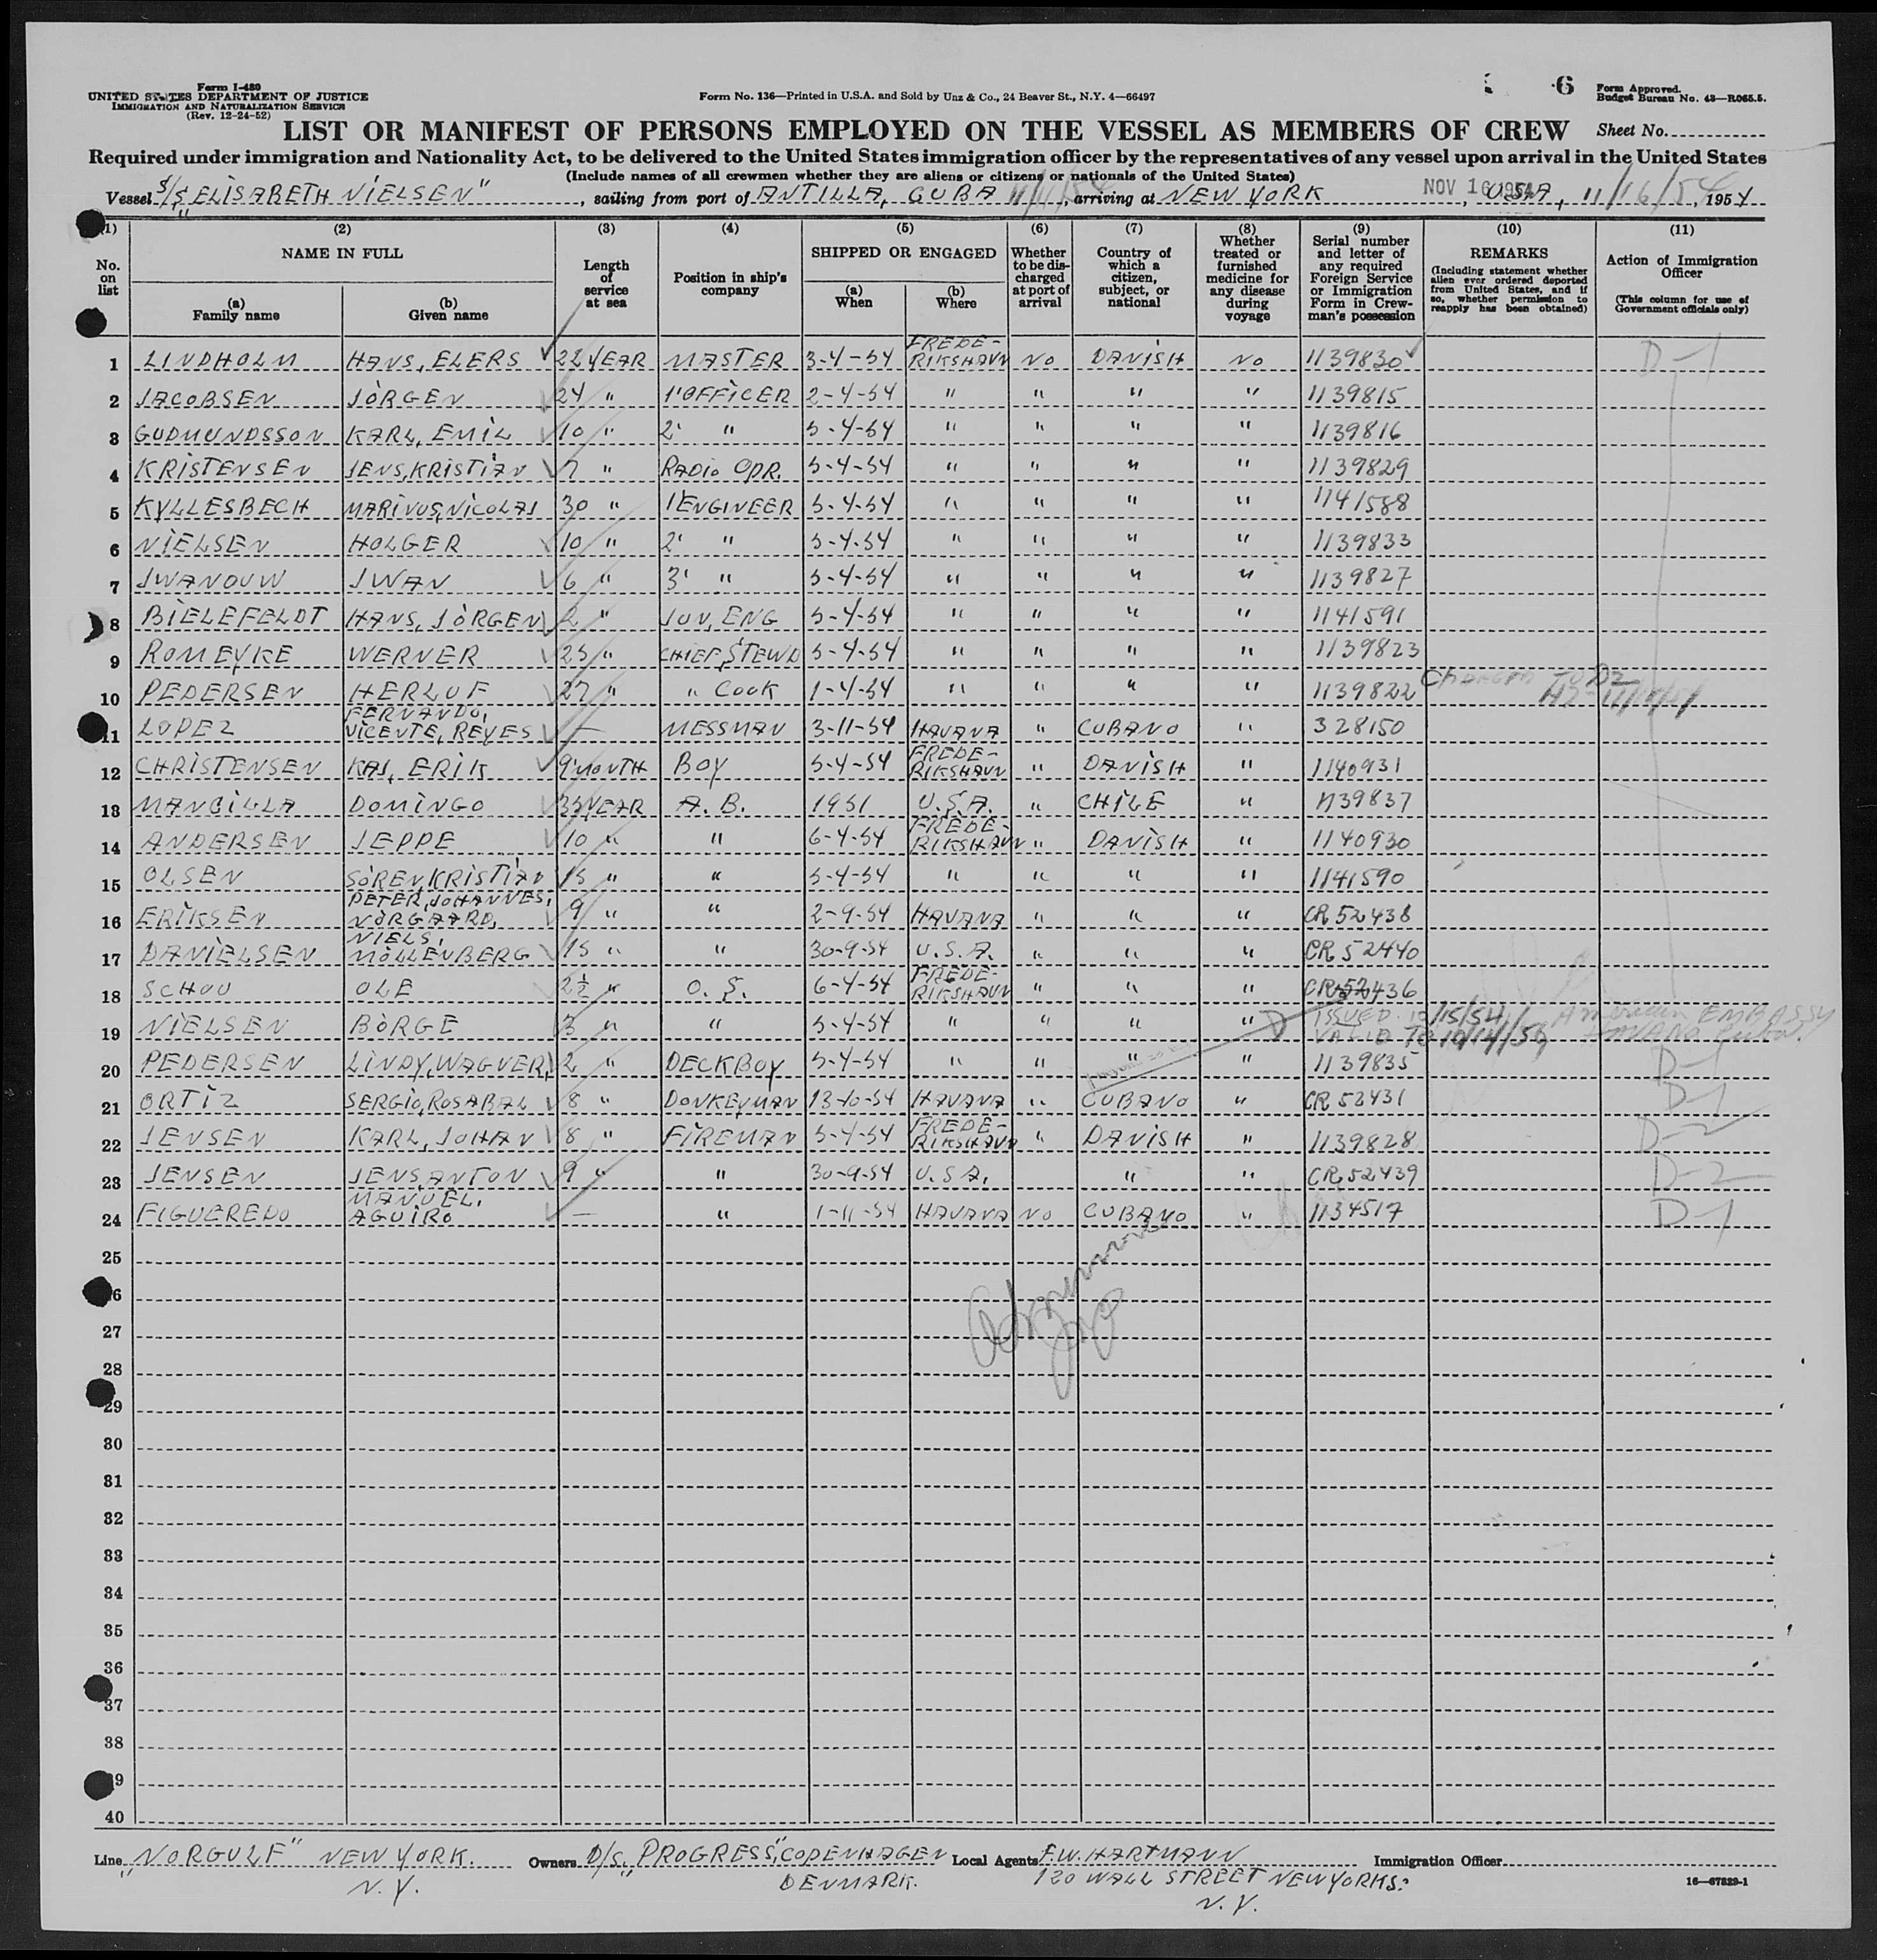 Form I-480
UNITED STATES DEPARTMENT OF JUSTICE
IMMIGRATION AND NATURALIZATION SERVICE
(Rev. 12-24-52)
Form No. 136—Printed in U.S.A. and Sold by Unz & Co., 24 Beaver St., N.Y. 4—66497
6
Form Approved.
Budget Bureau No. 43—R065.5.
LIST OR MANIFEST OF PERSONS EMPLOYED ON THE VESSEL AS MEMBERS OF CREW
Sheet No.
Required under immigration and Nationality Act, to be delivered to the United States immigration officer by the representatives of any vessel upon arrival in the United States
(Include names of all crewmen whether they are aliens or citizens or nationals of the United States)
Vessel S/S „ELISABETH NIELSEN", sailing from port of ANTILLA, CUBA 11/11/54, arriving at NEW YORK NOV 16 1954, USA, 11/16/54, 1954
(1) No. on list
(2) NAME IN FULL (a) Family name (b) Given name
(3) Length of service at sea
(4) Position in ship's company
(5) SHIPPED OR ENGAGED (a) When (b) Where
(6) Whether to be discharged at port of arrival
(7) Country of which a citizen, subject, or national
(8) Whether treated or furnished medicine for any disease during voyage
(9) Serial number and letter of any required Foreign Service or Immigration Form in Crewman's possession
(10) REMARKS (Including statement whether alien ever ordered deported from United States, and if so, whether permission to reapply has been obtained)
(11) Action of Immigration Officer (This column for use of Government officials only)
1 LINDHOLM HANS, ELERS 22 YEAR MASTER 3-4-54 FREDE-RIKSHAVN NO DANISH NO 1139830 D-1
2 JACOBSEN JÖRGEN 24 " 1'OFFICER 2-4-54 " " " " 1139815
3 GUDMUNDSSON KARL, EMIL 10 " 2' " 5-4-54 " " " " 1139816
4 KRISTENSEN JENS, KRISTIAN 7 " RADIO OPR. 5-4-54 " " " " 1139829
5 KYLLESBECH MARINUS, NICOLAJ 30 " 1'ENGINEER 5-4-54 " " " " 1141588
6 NIELSEN HOLGER 10 " 2' " 5-4-54 " " " " 1139833
7 JWANOUW JWAN 6 " 3' " 5-4-54 " " " " 1139827
8 BIELEFELDT HANS, JÖRGEN 2 " JUN, ENG 5-4-54 " " " " 1141591
9 ROMEYKE WERNER 25 " CHIEF, STEWD 5-4-54 " " " " 1139823
10 PEDERSEN HERLUF 27 " " COOK 1-4-54 " " " " 1139822 Changed to D2
11 LOPEZ FERNANDO, VICENTE, REYES — MESSMAN 3-11-54 HAVANA " CUBANO " 328150
12 CHRISTENSEN KAJ, ERIK 9 MONTH BOY 5-4-54 FREDE-RIKSHAVN " DANISH " 1140931
13 MANCILLA DOMINGO 35 YEAR A. B. 1951 U.S.A. " CHILE " 1139837
14 ANDERSEN JEPPE 10 " " 6-4-54 FREDE-RIKSHAVN " DANISH " 1140930
15 OLSEN SÖREN, KRISTIAN 15 " " 5-4-54 " " " " 1141590
16 ERIKSEN PETER, JOHANNES, NÖRGAARD, 9 " " 2-9-54 HAVANA " " " CR 52438
17 DANIELSEN NIELS, MÖLLENBERG 15 " " 30-9-54 U.S.A. " " " CR 52440
18 SCHOU OLE 2½ " O. S. 6-4-54 FREDE-RIKSHAVN " " " CR 52436
19 NIELSEN BÖRGE 3 " " 5-4-54 " " " " D ISSUED 10/15/54 American EMBASSY
VALID TO 10/14/56 HAVANA Cuba.
20 PEDERSEN LINDY, WAGNER, 2 " DECKBOY 5-4-54 " " " " 1139835 D-1
21 ORTIZ SERGIO, ROSABAL 8 " DONKEYMAN 13-10-54 HAVANA " CUBANO " CR 52431 D-1
22 JENSEN KARL, JOHAN 8 " FIREMAN 5-4-54 FREDE-RIKSHAVN " DANISH " 1139828 D-2
23 JENSEN JENS, ANTON 9 " " 30-9-54 U.S.A. " " CR 52439 D-2
24 FIGUEREDO MANUEL, AGUIRO — " 1-11-54 HAVANA NO CUBANO " 1134517 D-1
25
26
27
28
29
30
31
32
33
34
35
36
37
38
39
40
Line „NORGULF" NEW YORK. N.Y. Owners D/S „PROGRESS", COPENHAGEN DENMARK. Local Agents F.W. HARTMANN Immigration Officer
120 WALL STREET NEW YORK 5: N.Y.
16—67829-1